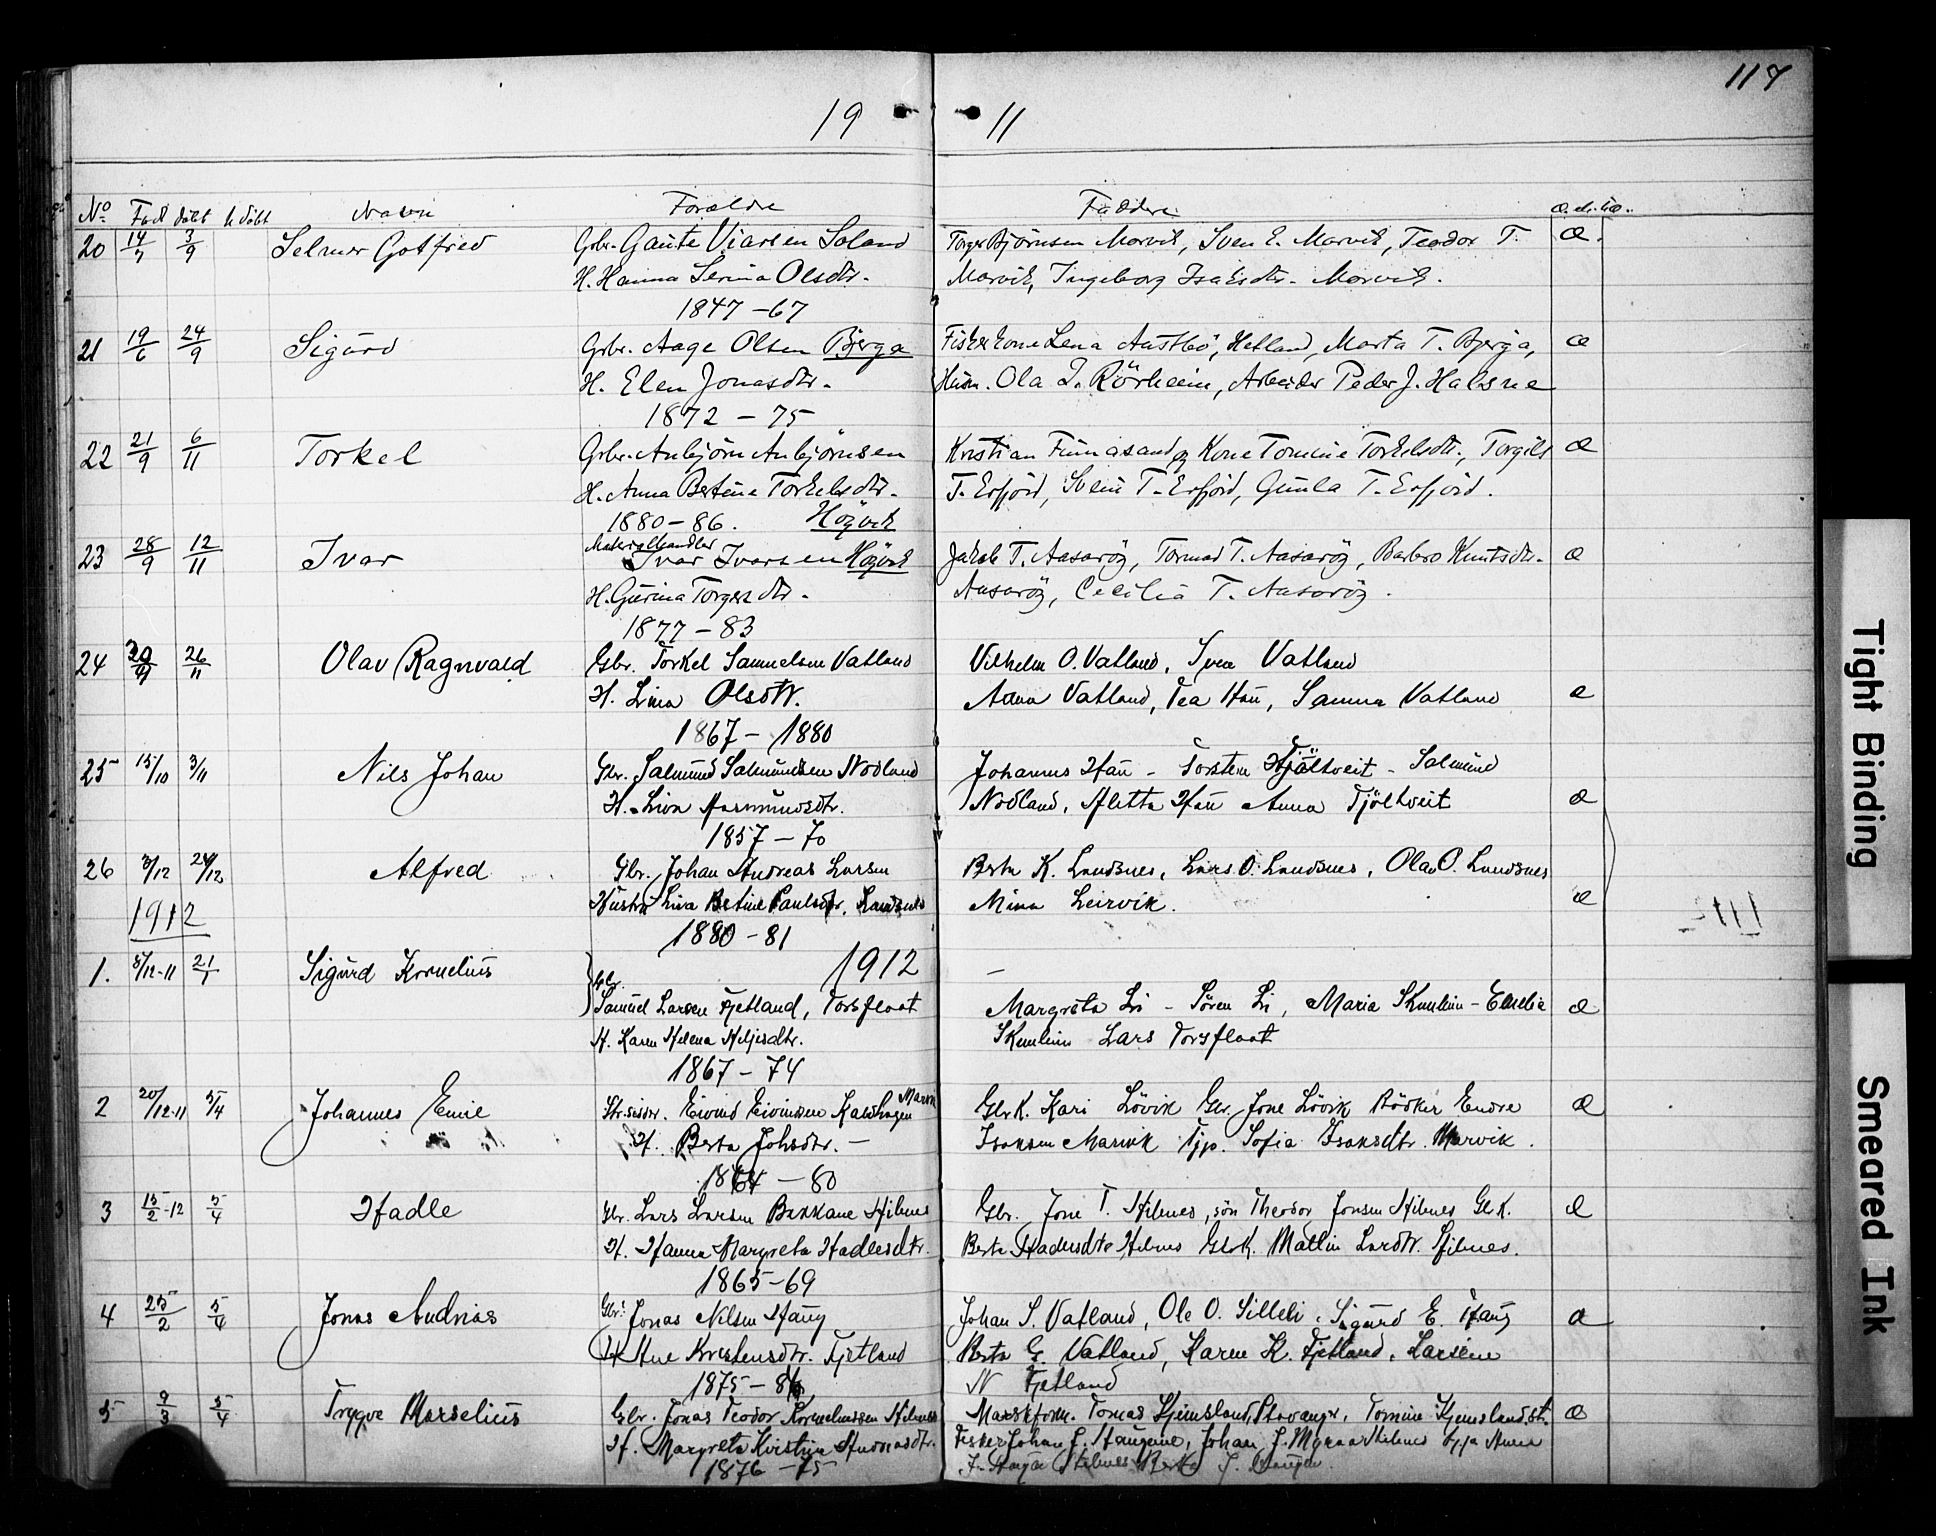 117
19 11
No Født døbt h.døbt Navn Forældre Faddere
20 14/7 3/9 Selmer Gotfred Gbr. Gaute Viarsen Soland Torger Bjørnsen Marvik, Sven E. Marvik, Teodor T. æ.
H. Hanna Serina Olsdtr. Marvik, Ingeborg Isaksdtr. Marvik.
1847 - 67
21 19/6 24/9 Sigurd Grbr. Aage Olsen Bjerga Fiskerkone Lena Austbö, Hetland, Marta T. Bjerga, æ
H. Elen Jonasdtr. Husm. Ola J. Rörheim, Arbeider Peder J. Halsne
1872 - 75
22 21/9 6/11 Torkel Grbr. Anbjörn Anbjörnsen Kristian Finnasand og Kone Tomine Torkelsdtr., Torgils æ
H. Anna Bertine Torkelsdtr. T. Erfjord, Svein T. Erfjord, Gunla T. Erfjord.
1880 - 86. Högvik
23 28/9 12/11 Ivar Materialhandler Ivar Ivarsen Högvik Jakob T. Aasarög, Tormod T. Aasarög, Barbro Knutsdtr. æ
H. Gurina Torgersdtr. Aasarög, Cecilia T. Aasarög.
1877 - 83
24 26/11 Olav Ragnvald Gbr. Torkel Samuelsen Vatland Vilhelm O. Vatland, Sven Vatland
H. Lina Olsdtr. Anna Vatland, Tea Hau, Samuel Vatland æ
1867 - 1880
25 15/10 3/11 Nils Johan Gbr. Salmund Salmundsen Nodland Johannes Hau - Torsten Tjöltveit - Salmund
H. Liva Aasmundsdtr. Nodland, Mletta Hau Anna Tjöltveit æ
1857 - 70
26 3/12 24/12 Alfred Gbr. Johan Andreas Larsen Berta K. Landsnes, Lars O. Landsnes, Olav O. Landsnes
1912 Hustru Lina Betine Paulsdtr. Landsnes Mina Leirvik. æ
1880 - 81
1. 8/12-11 21/1 Sigurd Kornelius Gbr. 1912 -
Samuel Larsen Fjetland, Torsfloat Margreta Li - Søren Li, Maria Skumlien - Emelie æ
H. Karen Helena Heljesdtr. Skumlien Lars Torsfloat
1867 - 74
2 20/12-11 5/4 Johannes Emie Eivind Eivindsen Marvik GbrK. Kari Lövik Gbr. Jone Lövik Bödker Endre æ
H. Berta Johsdtr. - Isaksen Marvik Tjp. Sofia Isaksdtr. Marvik.
1864 - 80
3 15/2-12 5/4 Hadle Gbr. Lars Larsen Bakkane Hilnes Gbr. Jone T. Hilnes, sön Theodor Jonsen Hilnes GbK. æ
H. Hanna Margreta Hadlesdtr. Berta Hadlesdtr Hilnes GbrK. Mallin Larsdtr. Hilnes.
1865-69
4 25/2 5/4 Jonas Andreas Gbr. Jonas Nilsen Haug Johan S. Vatland, Ole O. Silleli, Sigurd E. Haug æ
H Ane Kristensdtr. Fjetland Berta G. Vatland, Karen K. Fjetland, Larsine
1875 - N Fjetland
5 9/3 5/4 Trygve Marselius Gbr. Jonas Teodor Korneliussen Hilnes Maskform. Tomas Hjemsland, Stavanger, Tomine Hjemsland st. æ
H. Margreta Kristine Andreasdtr. Fisker Johan J. Haugene, Johan J. Myraas Hilnes Anna
1876 - 75 Hilnes Berta J. Haugen.